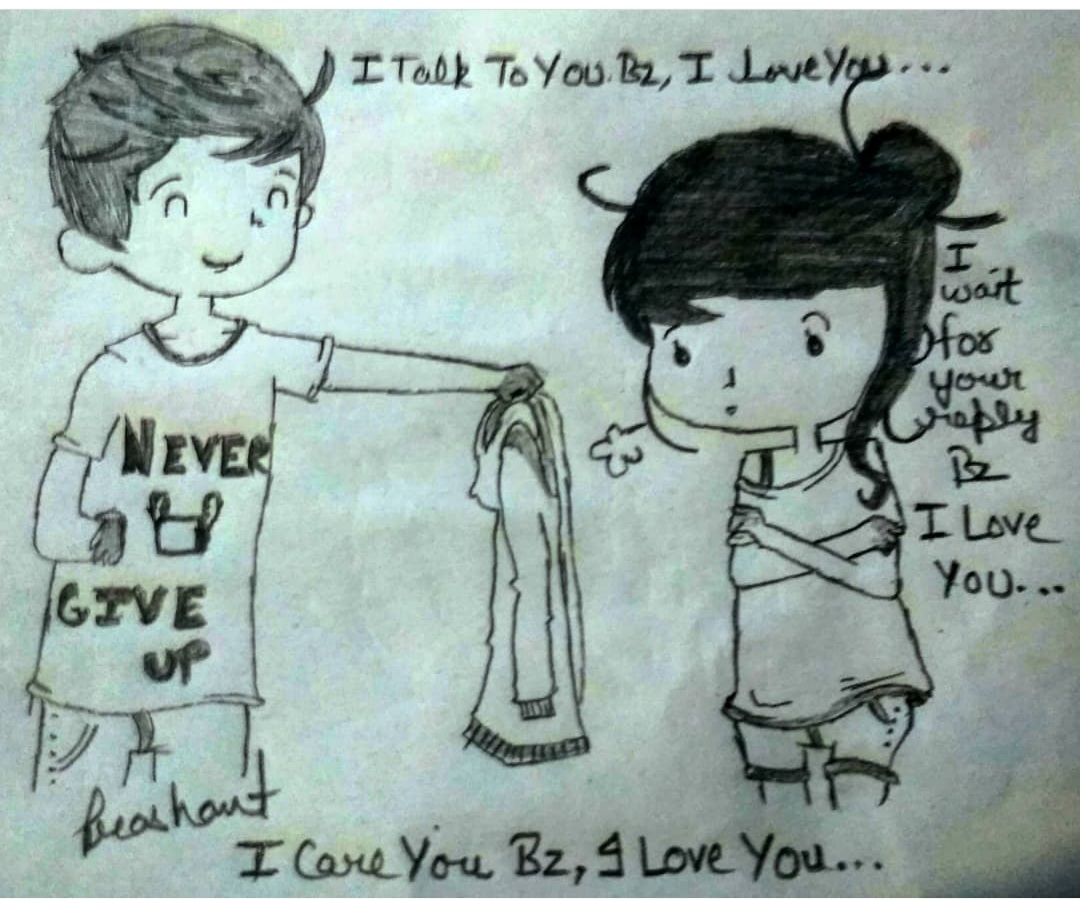 I Talk To You Bz, I Love You...
I
wait
for
your
reply
Bz
I Love
You...
NEVER
GIVE
UP
Prashant
I Care You Bz, I Love You...